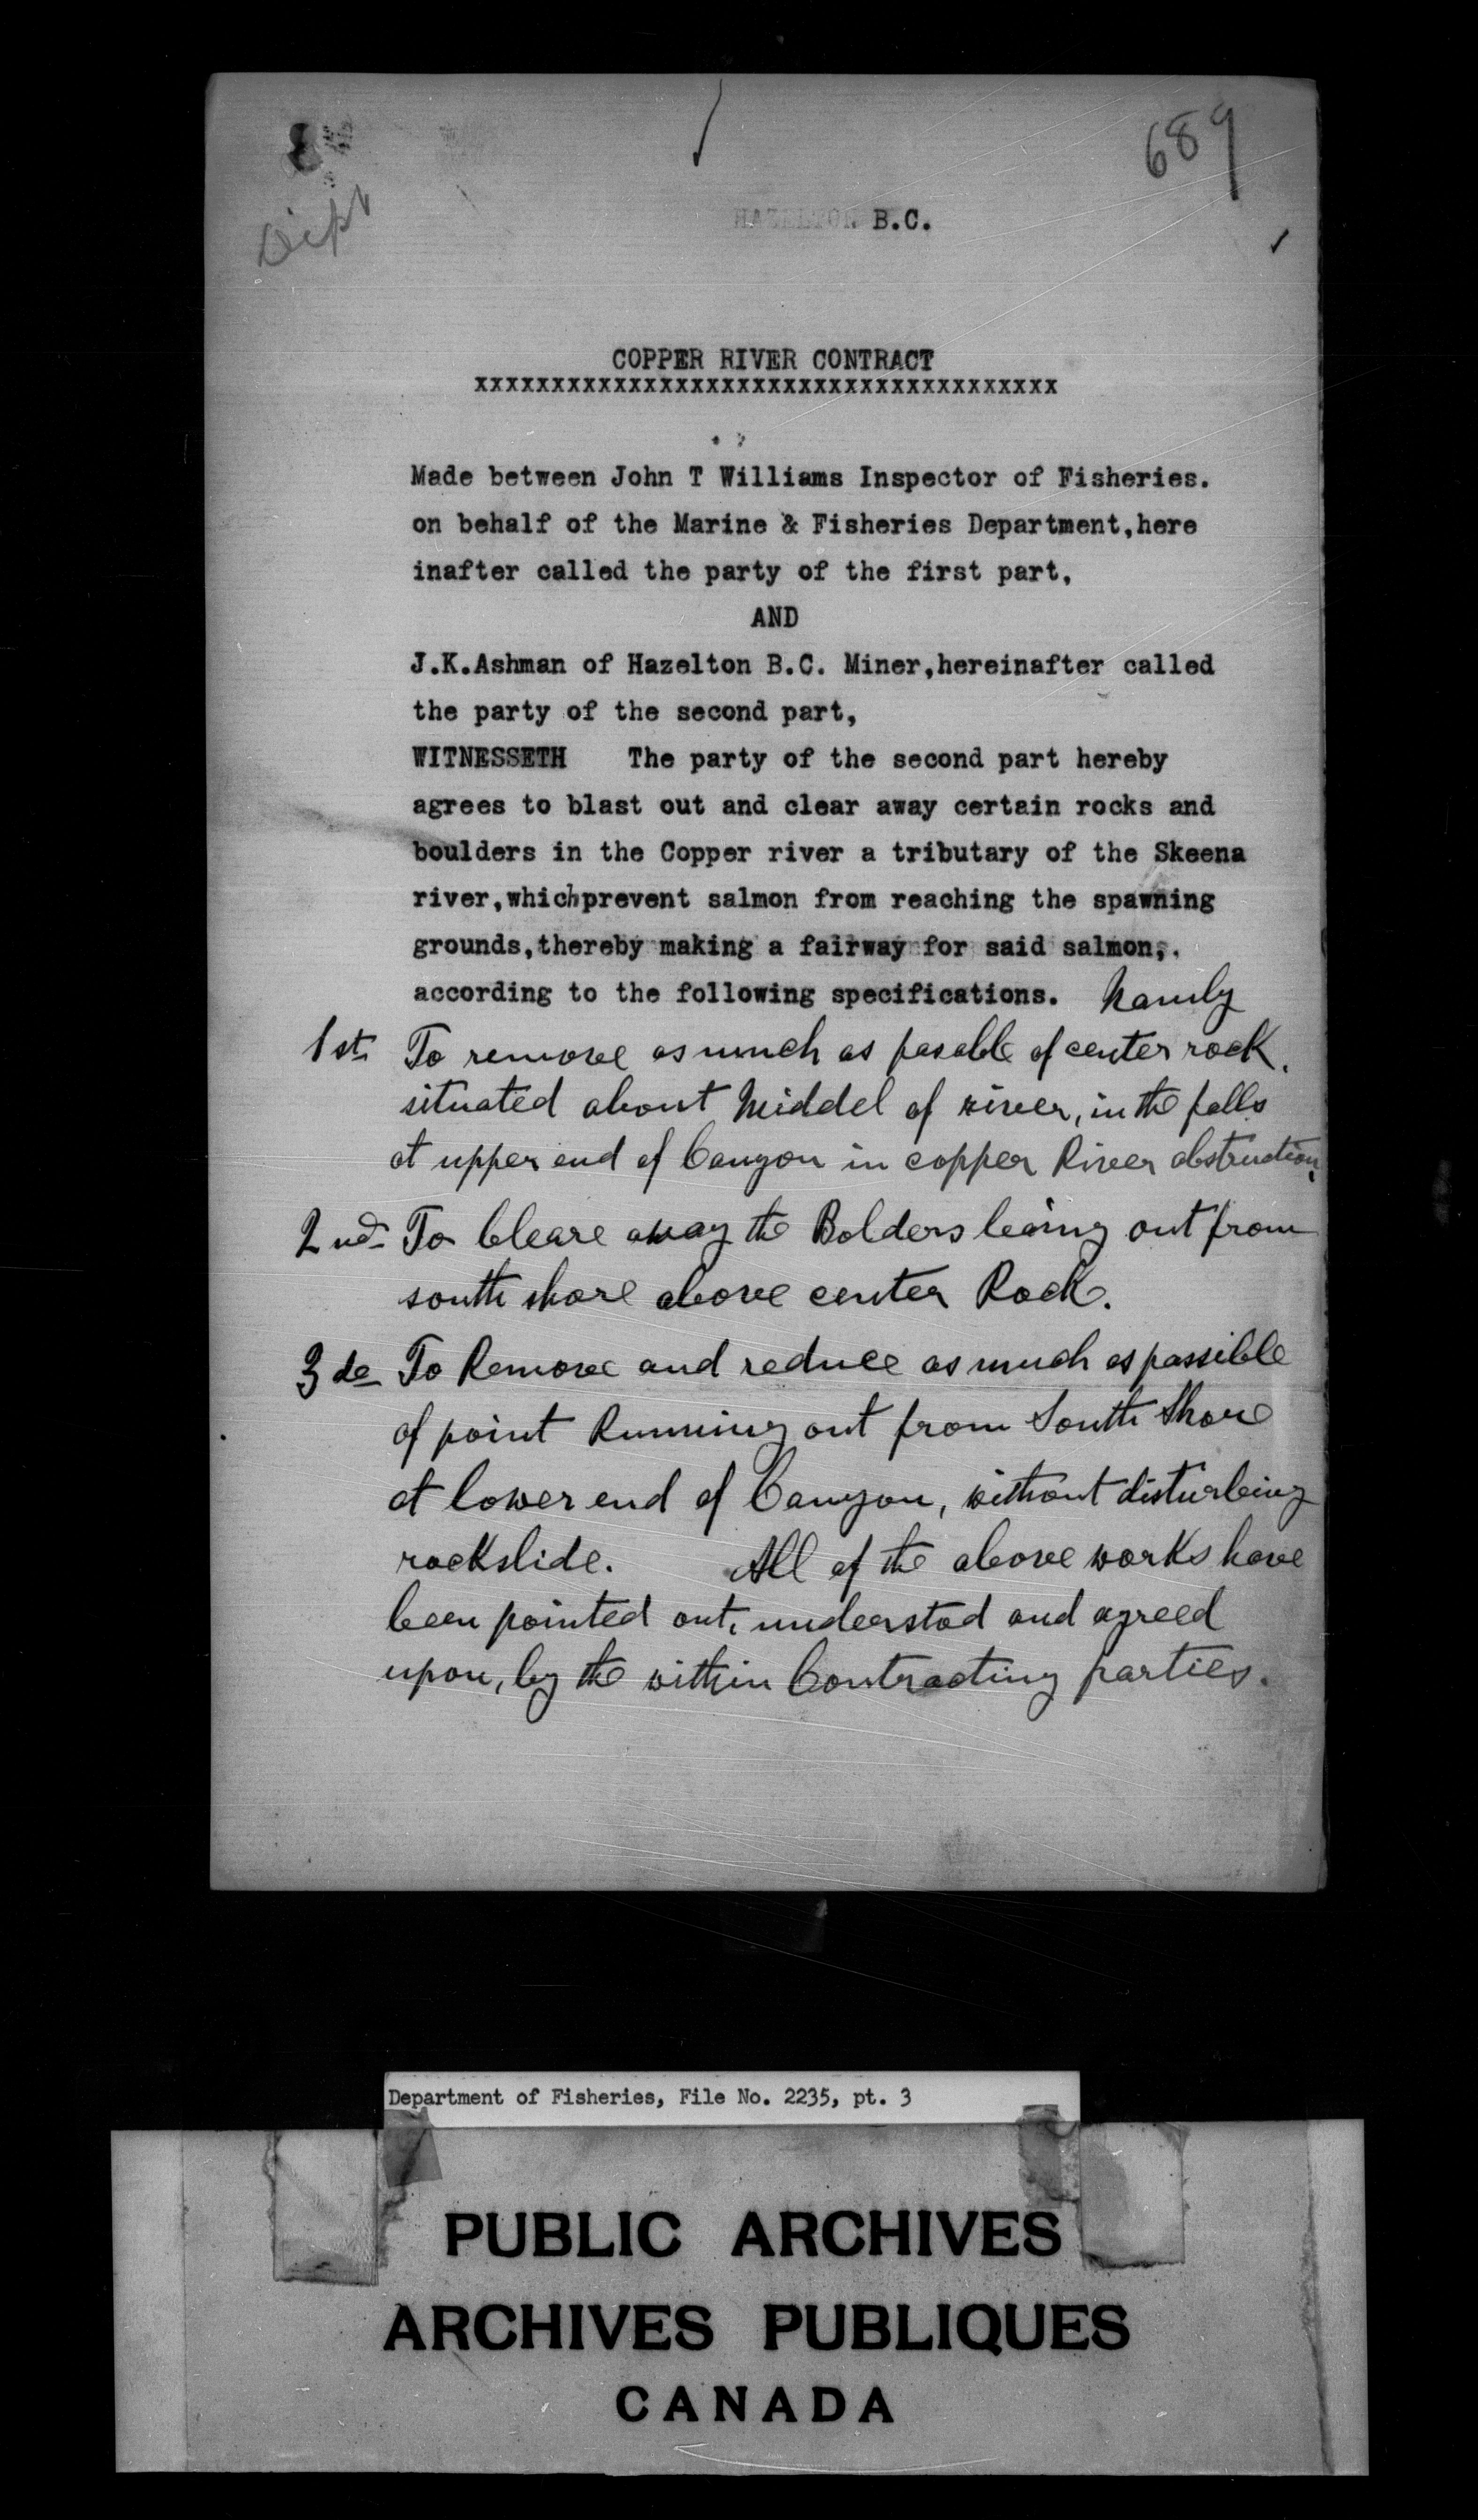 689
HAZELTON B.C.
COPPER RIVER CONTRACT
xxxxxxxxxxxxxxxxxxxxxxxxxxxxxxxxxxxxxx
Made between John T Williams Inspector of Fisheries.
on behalf of the Marine & Fisheries Department,here
inafter called the party of the first part,
AND
J.K.Ashman of Hazelton B.C. Miner,hereinafter called
the party of the second part,
WITNESSETH The party of the second part hereby
agrees to blast out and clear away certain rocks and
boulders in the Copper river a tributary of the Skeena
river,whichprevent salmon from reaching the spawning
grounds,thereby making a fairway for said salmon,.
according to the following specifications. Namly
1st To remove as much as pasable of center rock.
situated about Middel of river, in the falls
at upper end of Canyon in copper River obstruction.
2nd To Cleare away the Bolders leaing out from
south shore above center Rock.
3de To Remove and reduce as much as passible
of point Running out from South Shore
at lower end of Canyon, without disturbing
rockslide. All of the above works have
been pointed out, understod and agreed
upon, by the within Contracting parties.
Department of Fisheries, File No. 2235, pt. 3
PUBLIC ARCHIVES
ARCHIVES PUBLIQUES
CANADA